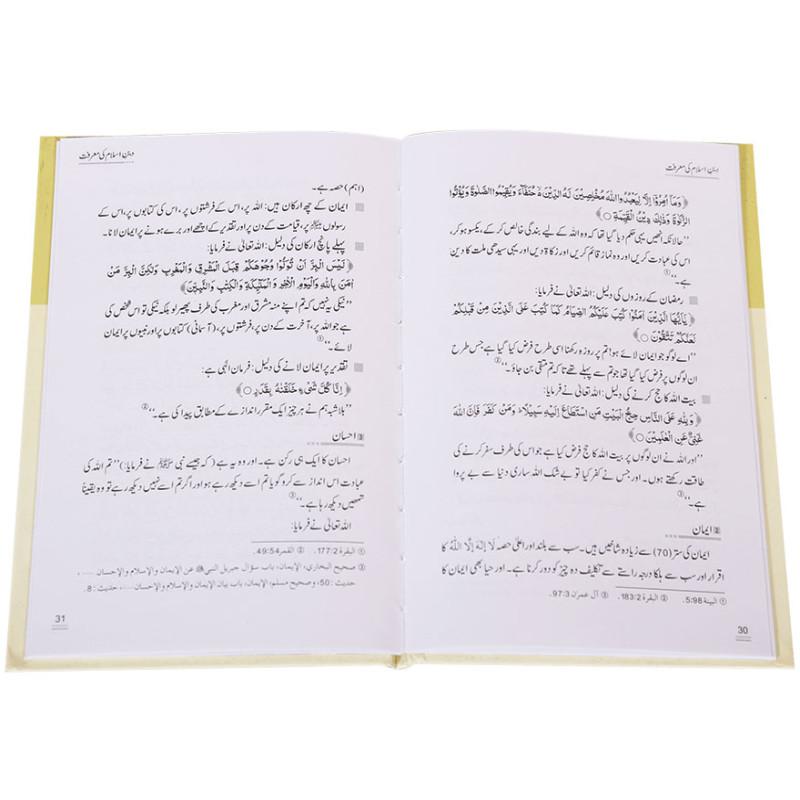 دینِ اسلام کی معرفت
﴿وَمَآ اُمِرُوْٓا اِلَّا لِيَعْبُدُوا اللّٰهَ مُخْلِصِيْنَ لَهُ الدِّيْنَ ۙ حُنَفَآءَ وَيُقِيْمُوا الصَّلٰوةَ وَيُؤْتُوا
الزَّكٰوةَ وَذٰلِكَ دِيْنُ الْقَيِّمَةِ ○﴾
”حالانکہ انھیں یہی حکم دیا گیا تھا کہ وہ اللہ کے لیے بندگی خالص کر کے، یکسو ہو کر،
اس کی عبادت کریں اور وہ نماز قائم کریں اور زکاۃ دیں اور یہی سیدھی ملت کا دین
ہے۔“①
رمضان کے روزوں کی دلیل: اللہ تعالیٰ نے فرمایا:
﴿يٰٓاَيُّهَا الَّذِيْنَ اٰمَنُوْا كُتِبَ عَلَيْكُمُ الصِّيَامُ كَمَا كُتِبَ عَلَى الَّذِيْنَ مِنْ قَبْلِكُمْ
لَعَلَّكُمْ تَتَّقُوْنَ ○﴾
”اے لوگو جو ایمان لائے ہو! تم پر روزہ رکھنا اسی طرح فرض کیا گیا ہے جس طرح
ان لوگوں پر فرض کیا گیا تھا جو تم سے پہلے تھے تاکہ تم متقی بن جاؤ۔“②
بیت اللہ کا حج کرنے کی دلیل: اللہ تعالیٰ نے فرمایا:
﴿وَلِلّٰهِ عَلَى النَّاسِ حِجُّ الْبَيْتِ مَنِ اسْتَطَاعَ اِلَيْهِ سَبِيْلًا ۭ وَمَنْ كَفَرَ فَاِنَّ اللّٰهَ
غَنِيٌّ عَنِ الْعٰلَمِيْنَ ○﴾
”اور اللہ نے ان لوگوں پر بیت اللہ کا حج فرض کیا ہے جو اس کی طرف سفر کرنے کی
طاقت رکھتے ہوں۔ اور جس نے کفر کیا تو بے شک اللہ ساری دنیا سے بے پروا
ہے۔“③
② ایمان
ایمان کی ستر (70) سے زیادہ شاخیں ہیں۔ سب سے بلند اور اعلیٰ حصہ لَا اِلٰهَ اِلَّا اللّٰهُ کا
اقرار اور سب سے ہلکا درجہ راستے سے تکلیف دہ چیز کو دور کرنا ہے۔ اور حیا بھی ایمان کا
① البينة 5:98. ② البقرة 183:2. ③ آل عمرن 97:3.
30
دینِ اسلام کی معرفت
(اہم) حصہ ہے۔
ایمان کے چھ ارکان ہیں: اللہ پر، اس کے فرشتوں پر، اس کی کتابوں پر، اس کے
رسولوں ﷺ پر، قیامت کے دن پر اور تقدیر کے اچھے اور برے ہونے پر ایمان لانا۔
پہلے پانچ ارکان کی دلیل: اللہ تعالیٰ نے فرمایا:
﴿لَيْسَ الْبِرَّ اَنْ تُوَلُّوْا وُجُوْهَكُمْ قِبَلَ الْمَشْرِقِ وَالْمَغْرِبِ وَلٰكِنَّ الْبِرَّ مَنْ
اٰمَنَ بِاللّٰهِ وَالْيَوْمِ الْاٰخِرِ وَالْمَلٰٓىِٕكَةِ وَالْكِتٰبِ وَالنَّبِيّٖنَ﴾
”نیکی یہ نہیں کہ تم اپنے منہ مشرق اور مغرب کی طرف پھیر لو بلکہ نیکی تو اس شخص کی
ہے جو اللہ پر، آخرت کے دن پر، فرشتوں پر، (آسمانی) کتابوں پر اور نبیوں پر ایمان
لائے۔“①
تقدیر پر ایمان لانے کی دلیل: فرمان الٰہی ہے:
﴿اِنَّا كُلَّ شَيْءٍ خَلَقْنٰهُ بِقَدَرٍ ○﴾
”بلاشبہ ہم نے ہر چیز ایک مقرر اندازے کے مطابق پیدا کی ہے۔“②
③ احسان
احسان کا ایک ہی رکن ہے۔ اور وہ یہ ہے (کہ جیسے نبی ﷺ نے فرمایا:) ”تم اللہ کی
عبادت اس انداز سے کرو گویا تم اسے دیکھ رہے ہو اور اگر تم اسے نہیں دیکھ رہے تو وہ یقیناً
تمھیں دیکھ رہا ہے۔“③
اللہ تعالیٰ نے فرمایا:
① البقرة 177:2. ② القمر 49:54.
③ صحيح البخاري، الإيمان، باب سؤال جبريل النبي ﷺ عن الإيمان والإسلام والإحسان .....،
حديث: 50، وصحيح مسلم، الإيمان، باب بيان الإيمان والإسلام والإحسان .....، حديث: 8.
31